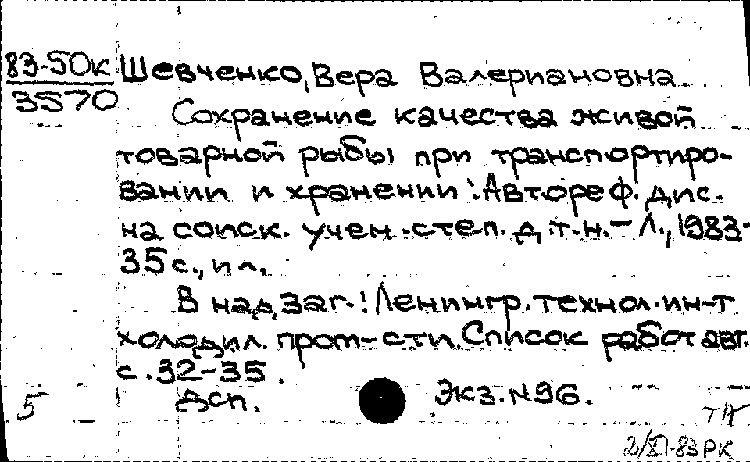 83-50к
3570
Шевченко, Вера Валериановна.
Сохранение качества живой
товарной рыбы при транспортиро-
вании и хранении: Автореф. дис.
на соиск. учен. степ. д.т.н. - Л., 1983-
35 с., ил.
В надзаг.: Ленингр. технол. ин-т
холодил. пром-сти. Список работ авт.
с. 32-35.
Дсп.
Экз. №96.
5
2/XI-83 РК